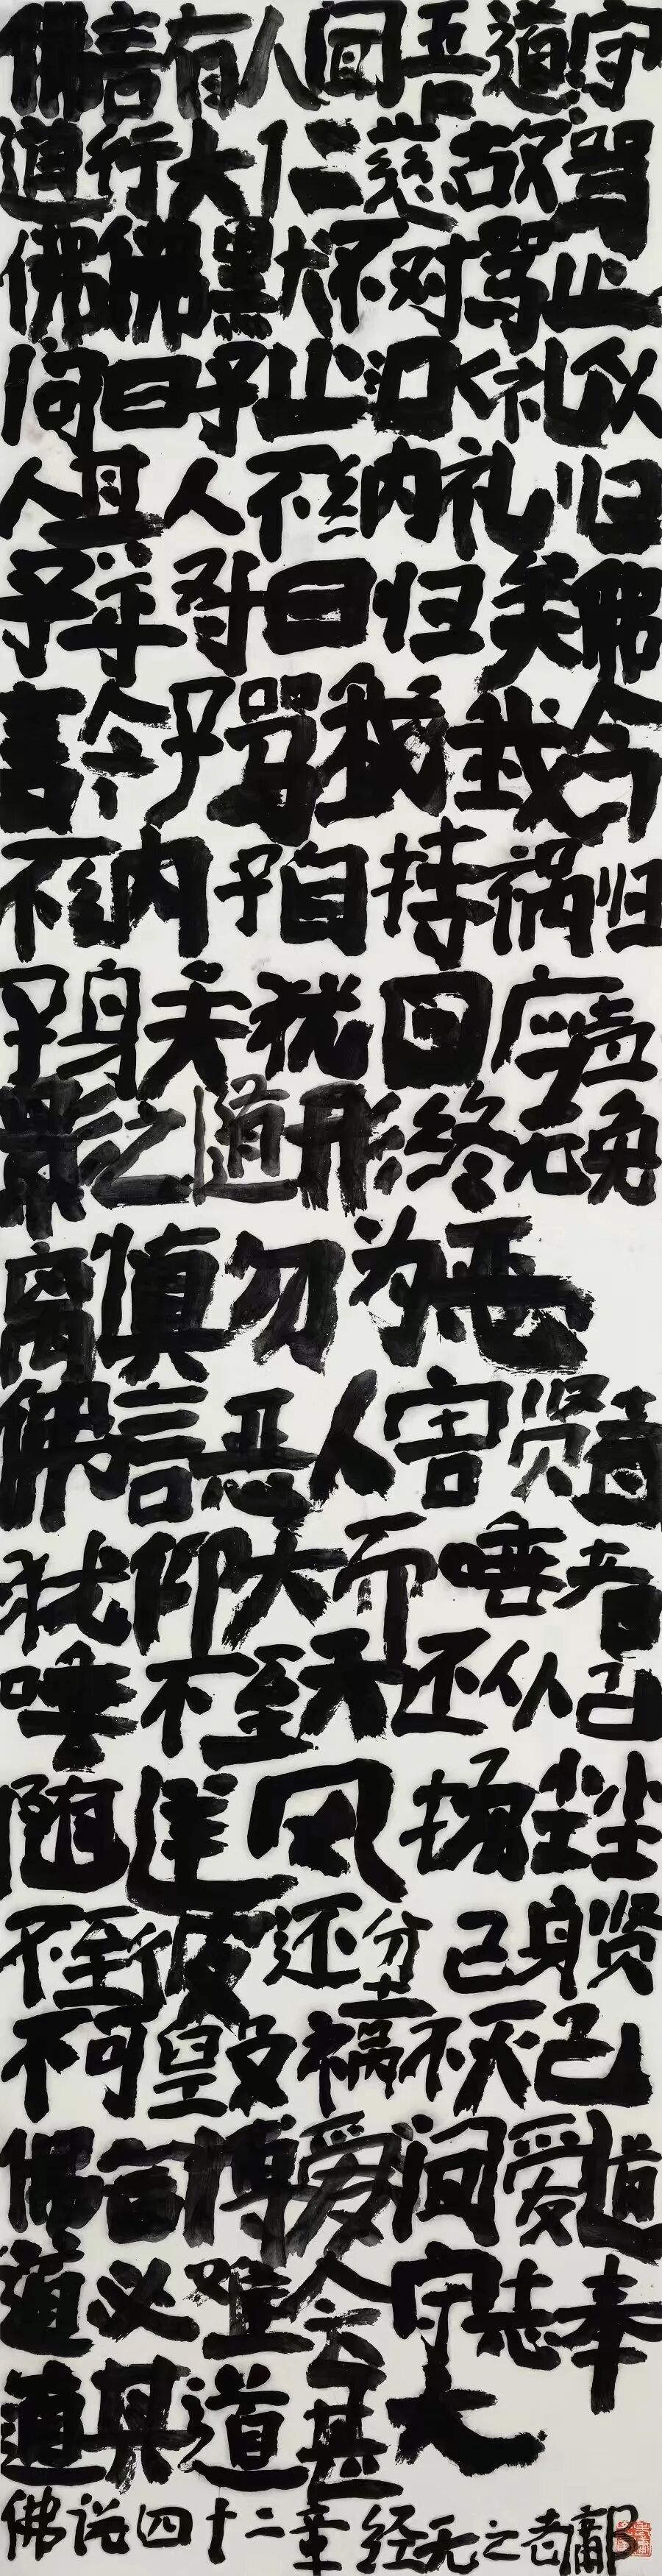 佛言有人闻吾道守
道行大仁慈故骂
佛佛默然不对骂止
问曰子以礼从
人其人不纳礼归
子乎对曰归矣佛
言今子骂我我今
不纳子自持祸归
子身矣犹回应声
影之追形终无免
离慎勿为恶
佛言恶人害贤者
犹仰天而唾者
唾不至天还从己
随逆风扬尘尘
不至彼还坌己身贤
不可毁祸不灭己
佛言博爱闻爱道
道必难会守志奉
道其道甚大
佛说四十二章经无之老